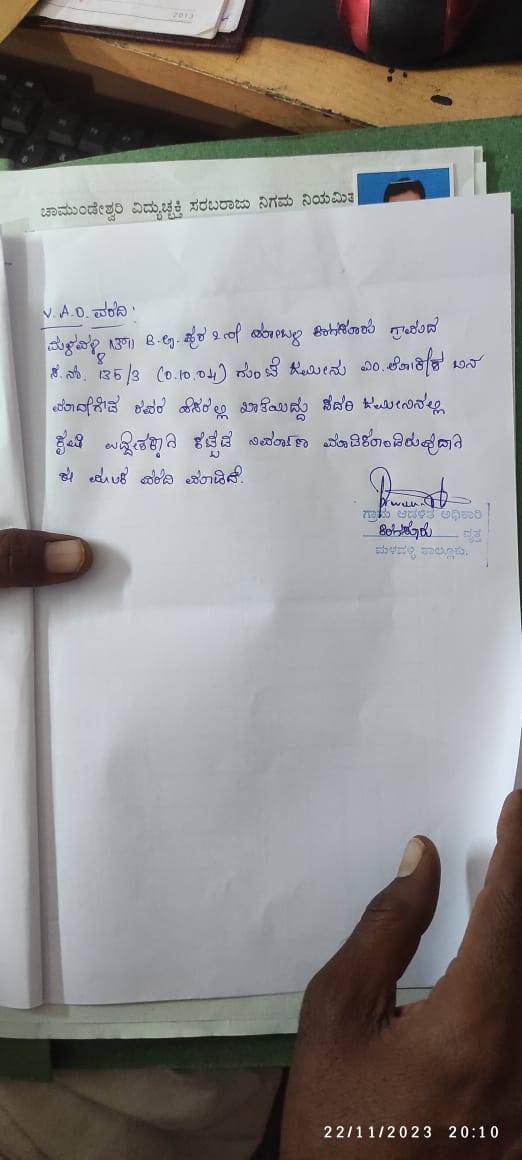 2013
ಚಾಮುಂಡೇಶ್ವರಿ ವಿದ್ಯುಚ್ಛಕ್ತಿ ಸರಬರಾಜು ನಿಗಮ ನಿಯಮಿತ
V.A.O. ವರದಿ:
ಮಳವಳ್ಳಿ ತಾ|| B.G. ಪುರ 2ನೇ ಹೋಬಳಿ ಕಿರಗಸೂರು ಗ್ರಾಮದ
ಸ.ನಂ. 135/3 (0.10.04) ಗುಂಟೆ ಜಮೀನು ಎಂ. ಲೋಕೇಶ ಬಿನ್
ಮಾದೇಗೌಡ ರವರ ಹೆಸರಲ್ಲಿ ಖಾತೆಯಿದ್ದು ಸದರಿ ಜಮೀನಿನಲ್ಲಿ
ಕೃಷಿ ಉದ್ದೇಶಕ್ಕಾಗಿ ಕಟ್ಟಡ ನಿರ್ಮಾಣ ಮಾಡಿಕೊಂಡಿರುವುದಾಗಿ
ಈ ಮೂಲಕ ವರದಿ ಮಾಡಿದೆ.
ಗ್ರಾಮ ಆಡಳಿತ ಅಧಿಕಾರಿ
ಕಿರಗಸೂರು ವೃತ್ತ
ಮಳವಳ್ಳಿ ತಾಲ್ಲೂಕು.
22/11/2023 20:10